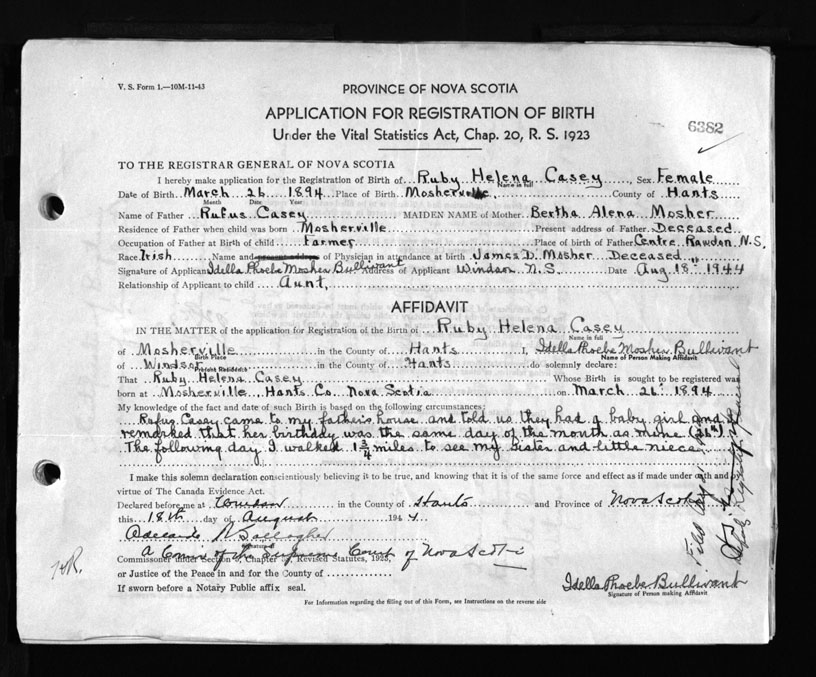 V. S. Form 1.—10M-11-43
PROVINCE OF NOVA SCOTIA
APPLICATION FOR REGISTRATION OF BIRTH
Under the Vital Statistics Act, Chap. 20, R. S. 1923
6382
TO THE REGISTRAR GENERAL OF NOVA SCOTIA
I hereby make application for the Registration of Birth of Ruby Helena Casey, Sex Female
Name in full
Date of Birth March 26 1894 Place of Birth Mosherville, County of Hants
Month Date Year
Name of Father Rufus Casey MAIDEN NAME of Mother Bertha Alena Mosher
Residence of Father when child was born Mosherville Present address of Father Deceased
Occupation of Father at Birth of child farmer Place of birth of Father Centre Rawdon N.S.
Race Irish Name and present address of Physician in attendance at birth James D. Mosher Deceased
Signature of Applicant Idella Phoebe Mosher Bullivant Address of Applicant Windsor N.S. Date Aug. 18th 1944
Relationship of Applicant to child Aunt.
AFFIDAVIT
IN THE MATTER of the application for Registration of the Birth of Ruby Helena Casey
Name in full
of Mosherville in the County of Hants I, Idella Phoebe Mosher Bullivant
Birth Place Name of Person Making Affidavit
of Windsor in the County of Hants do solemnly declare:
Present Residence
That Ruby Helena Casey Whose Birth is sought to be registered was
born at Mosherville Hants Co. Nova Scotia on March 26th 1894
My knowledge of the fact and date of such Birth is based on the following circumstances:
Rufus Casey came to my father's house and told us they had a baby girl and
remarked that her birthday was the same day of the month as mine (26th).
The following day I walked 1 3/4 miles to see my sister and little niece
I make this solemn declaration conscientiously believing it to be true, and knowing that it is of the same force and effect as if made under oath and
virtue of The Canada Evidence Act.
Declared before me at Windsor in the County of Hants and Province of Nova Scotia
this 18th day of August 1944
Gallagher
A Comr of the Supreme Court of Nova Scotia
Commissioner under Section Chapter Revised Statutes, 1923,
or Justice of the Peace in and for the County of
If sworn before a Notary Public affix seal.
Idella Phoebe Bullivant
Signature of Person making Affidavit
For Information regarding the filling out of this Form, see Instructions on the reverse side